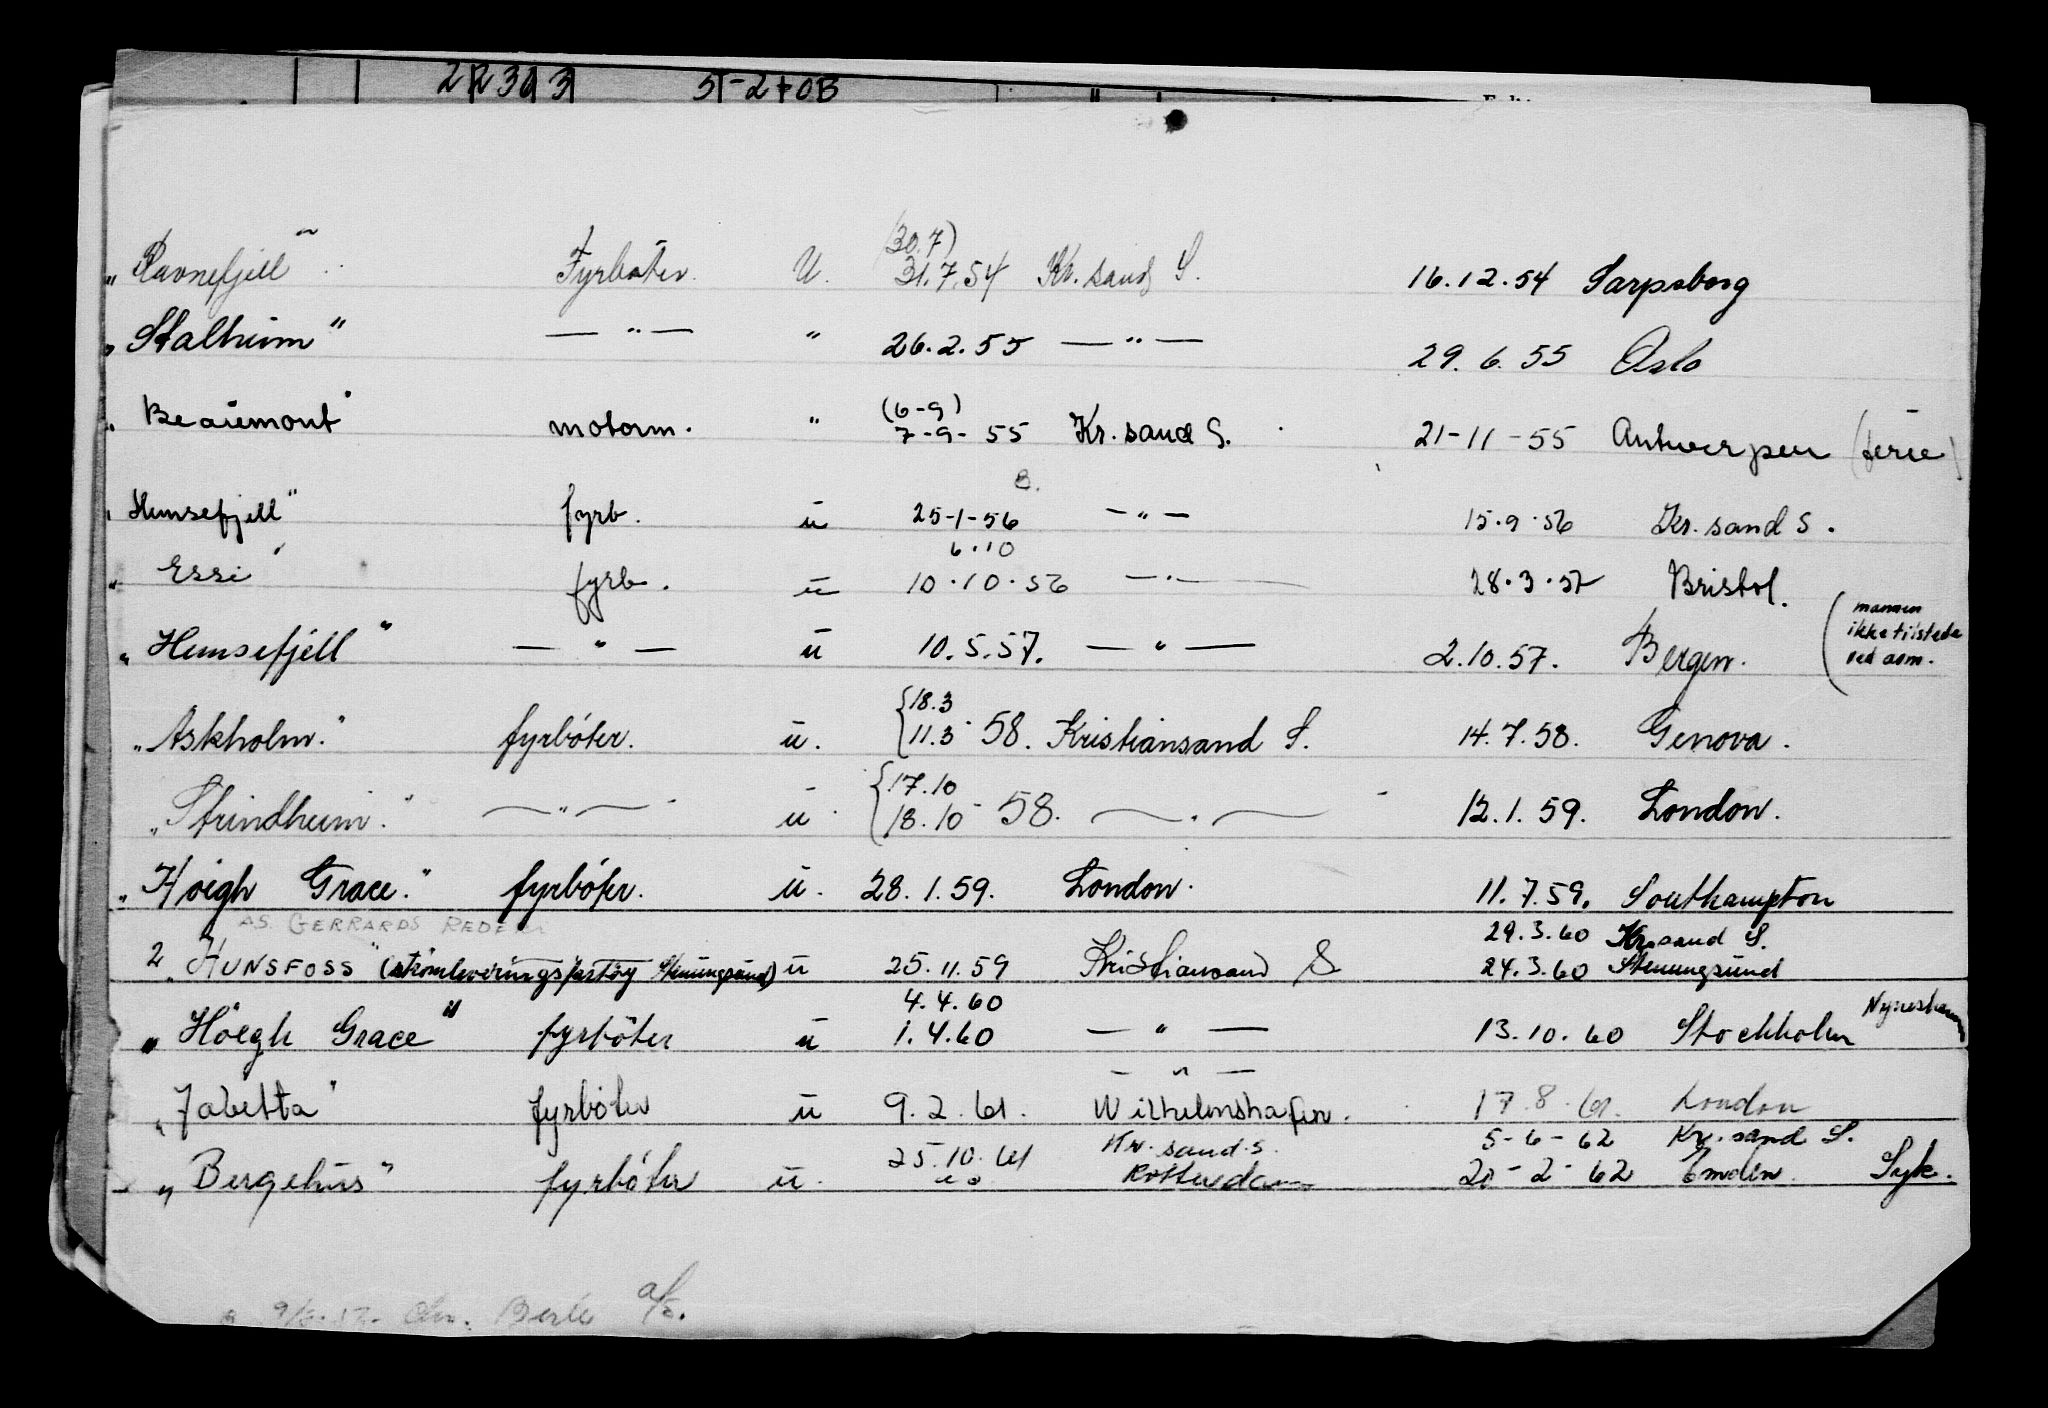 22303 5-2-0B
„Ravnefjell" Fyrbøter. U. (30.7) 31.7.54 Kr. sand S. 16.12.54 Sarpsborg
„Stalheim" — " — " 26.2.55 — " — 29.6.55 Oslo
„Beaumont" motorm. " (6-9) 7-9-55 Kr. sand S. 21-11-55 Antwerpen (ferie)
„Hemsefjell" fyrb. u 25-1-56 — " — 15.9.56 Kr. sand S.
„Essi" fyrb. u 6.10 10.10.56 — " — 28.3.57 Bristol.
„Hemsefjell" — " — u 10.5.57. — " — 2.10.57. Bergen. (mannen ikke tilstede ved avm.
„Askholm." fyrbøter. u. {18.3 11.3 - 58. Kristiansand S. 14.7.58. Genova.
„Strindheim." — " — u. {17.10 18.10 - 58. — " — 12.1.59. London.
„Høigh Grace." fyrbøter. u. 28.1.59. London. 11.7.59. Southampton
AS. GERRARDS REDERI 29.3.60 Kr.sand S.
2 „HUNSFOSS" (strømleveringsfartøy Stenungsund) u 25.11.59 Kristiansand S 24.3.60 Stenungsund
„Høegh Grace" fyrbøter u 4.4.60 1.4.60 — " — 13.10.60 Stockholm Nyneshamn
— " —
„Jabetta" fyrbøter u 9.2.61. Wilhelmshafen. 17.8.61. London
25.10.61 Kr. sand. S. 5-6-62 Kr. sand S.
„Bergehus" fyrbøter u. Rotterdam 20-2-62 Emden. Syk.
Berle a/s.